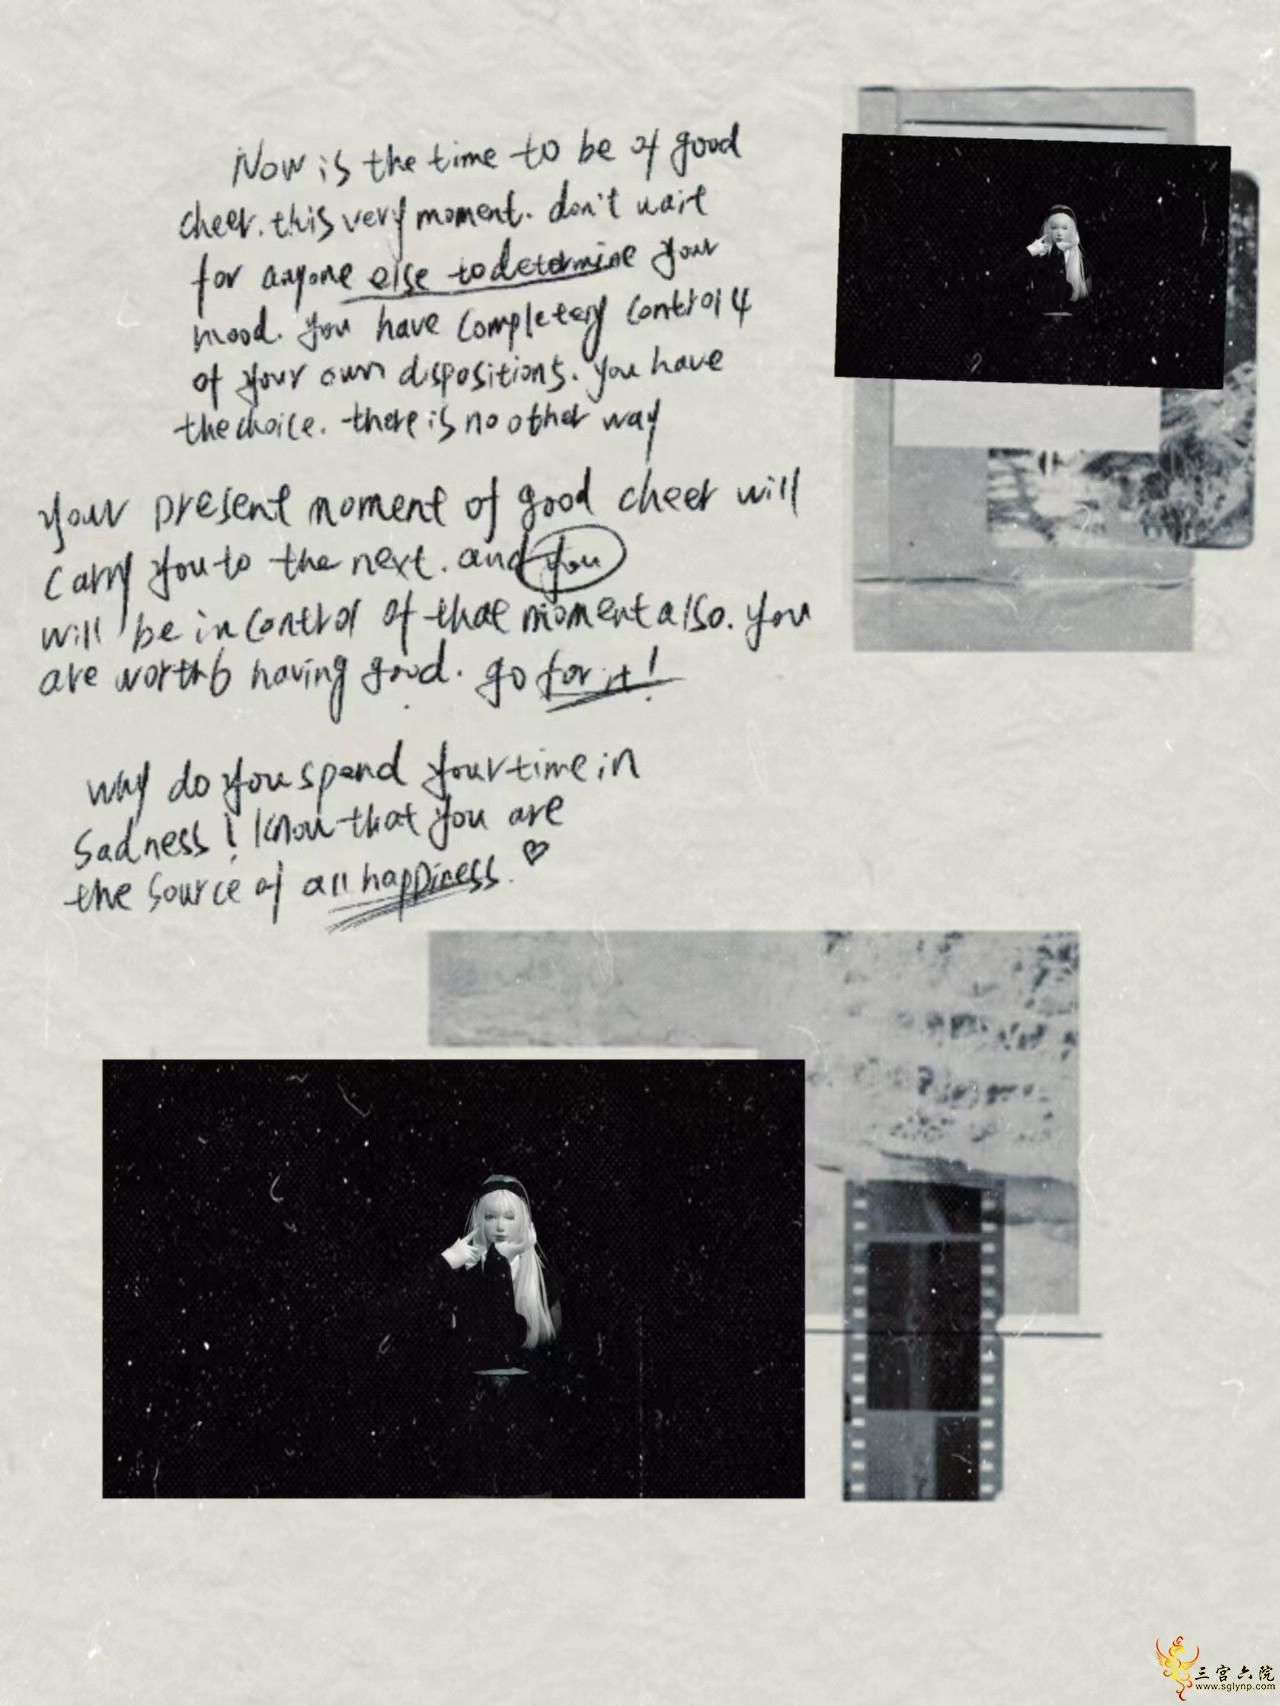 Now is the time to be of good
cheer. this very moment. don't wait
for anyone else to determine your
mood. you have completely control 4
of your own dispositions. you have
the choice. there is no other way
your present moment of good cheer will
carry you to the next. and you
will be in control of that moment also. you
are worth6 having good. go for it!
why do you spend your time in
sadness! know that you are
the source of all happiness. ♡
三宫六院
www.sglynp.com